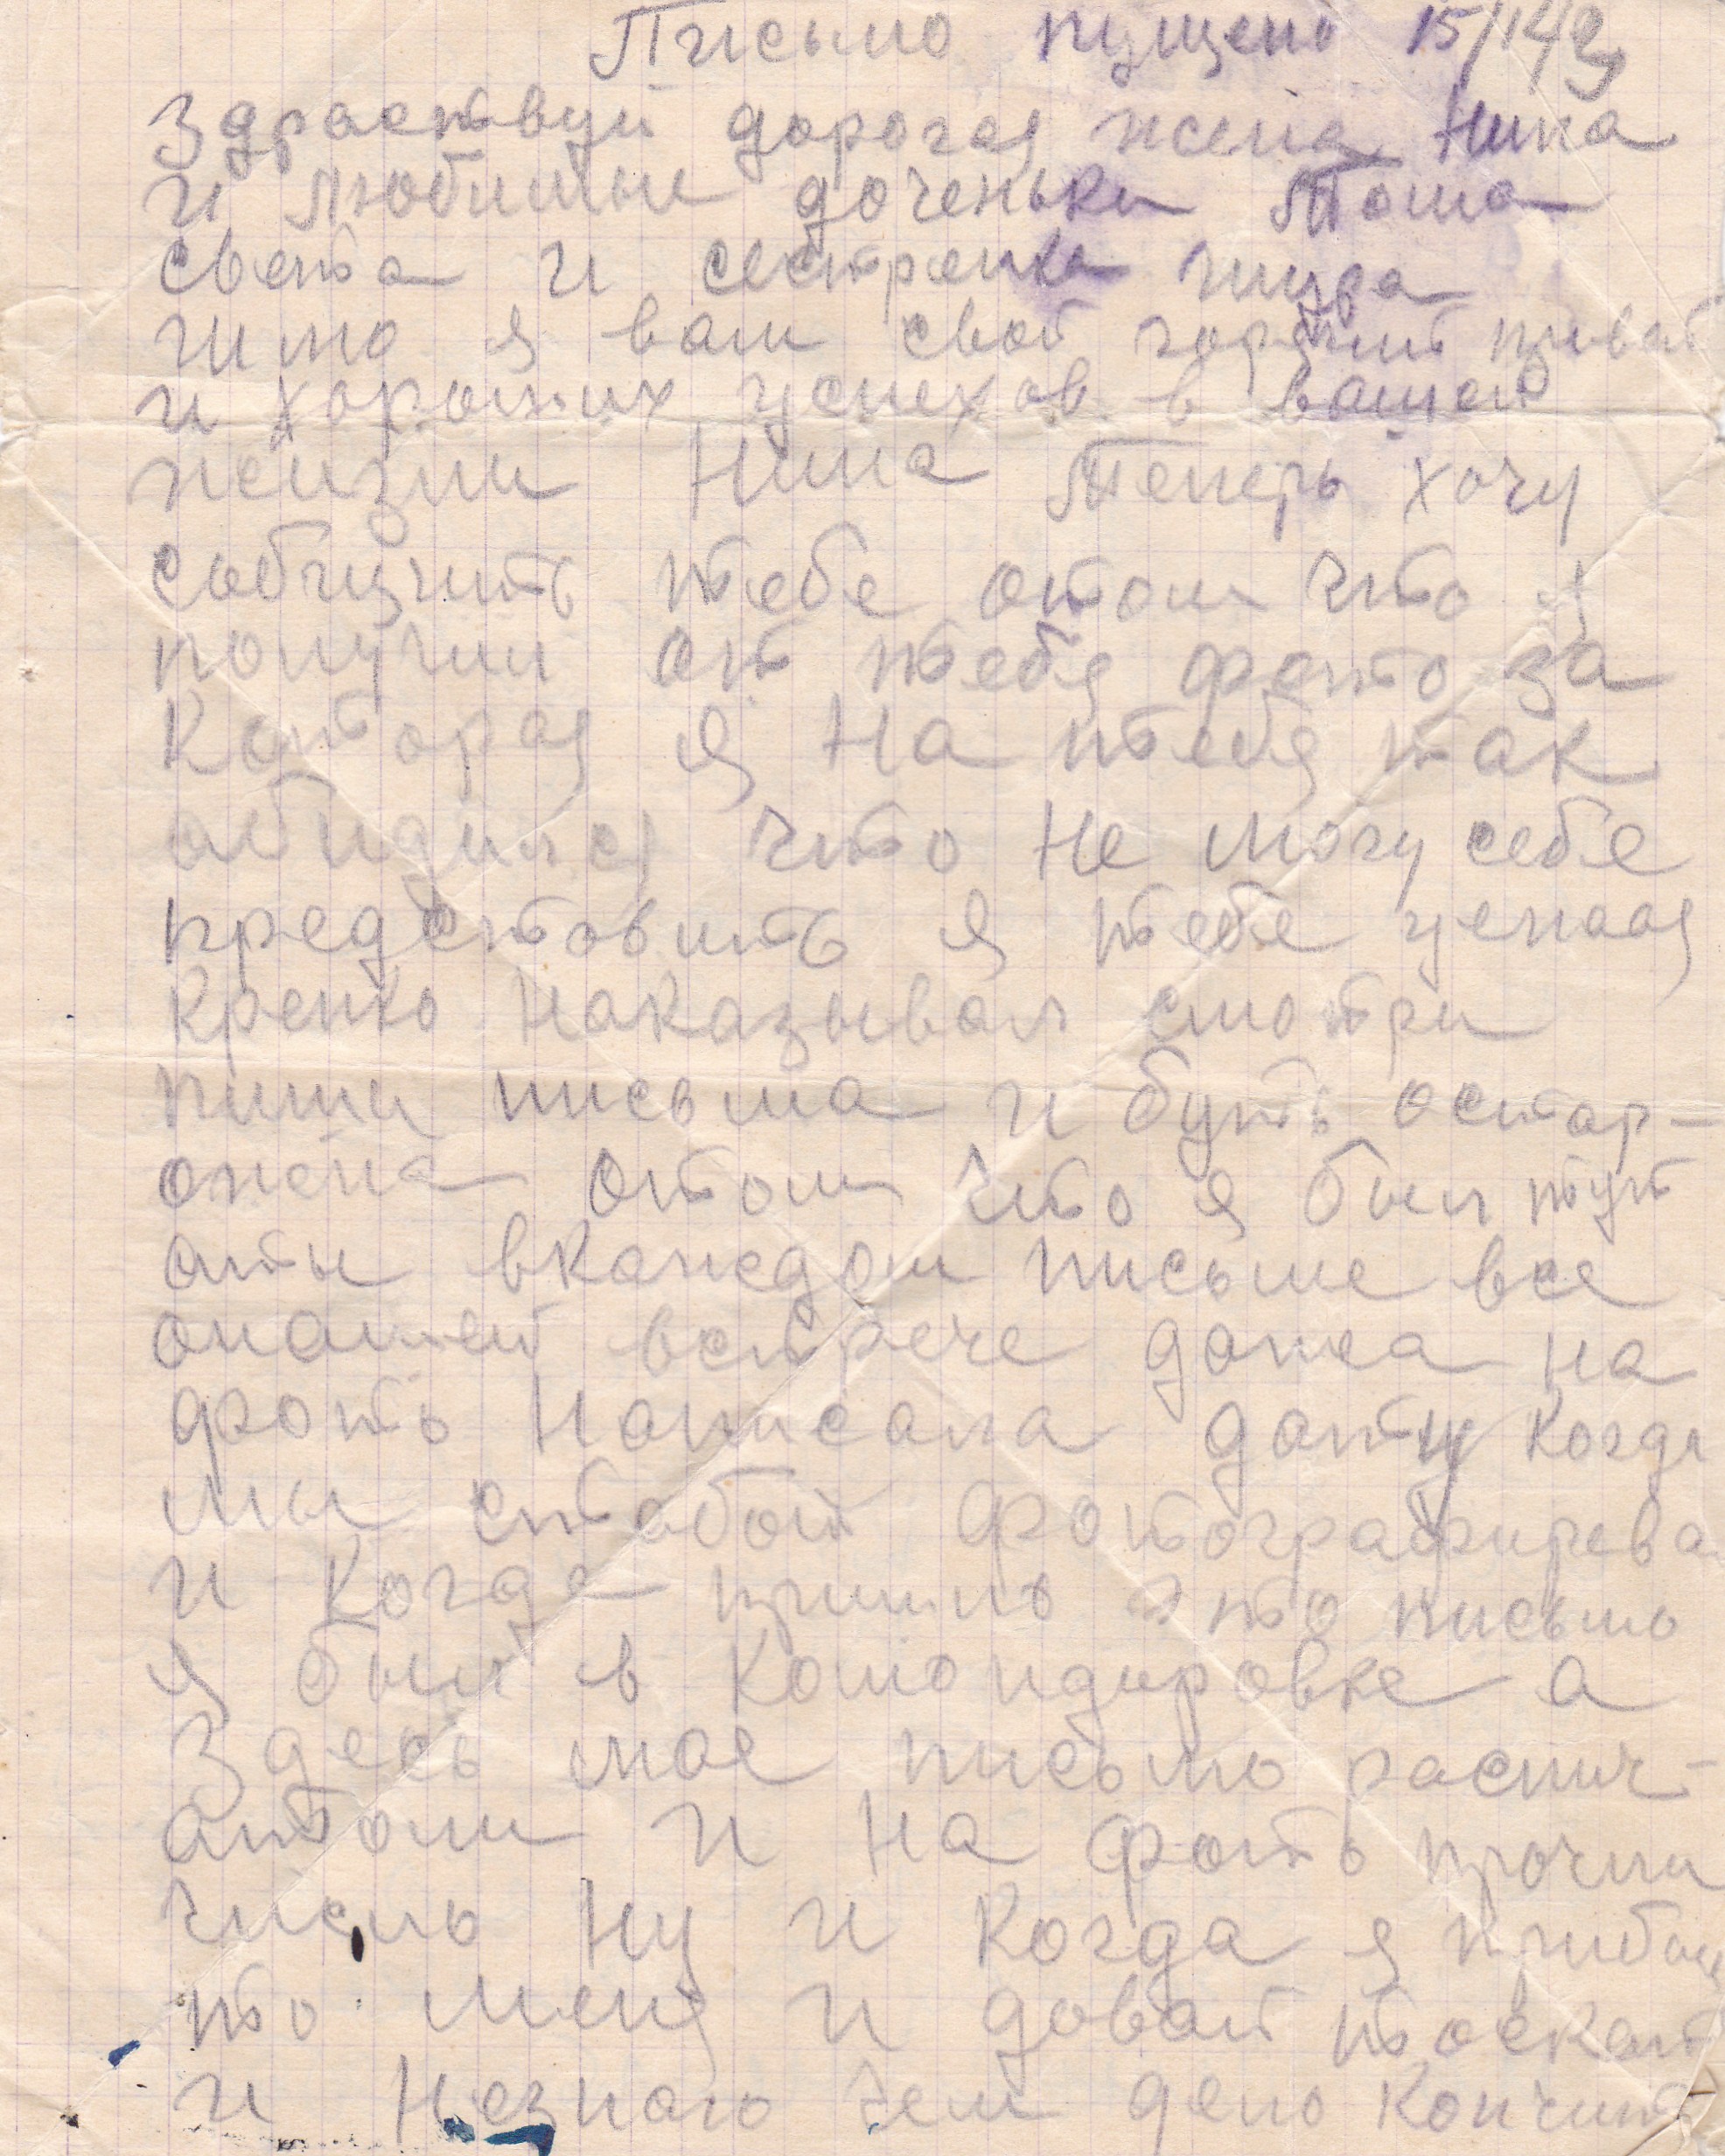 Письмо пущено 15/I 49
Здраствуй дорогая жена Нина
и любимыи доченьки Тома
света и сестренка шура
шлю я вам свой горячий привет
и хороших успехов в вашей
жизни Нина Теперь хочу
собчить тебе отом что я
получил от тебя фото за
Которая я На тебя так
абиделся что Не могу себе
представить я тебе целая
Крепко Наказывал смотри
пиши письма и буть остар-
ожена Отом что я был тут
аты вкаждом письме все
онашей встрече дажа на
фоть Написала дату Когда
мы стобой фотографирева
и Когда пришло это письмо
я был в Командировке а
Здесь мое письмо распич-
атоли и На фоть прочли
число Ну и Когда я прибыл
то меня и довай тоскат
и Незнаю чем дело Кончит